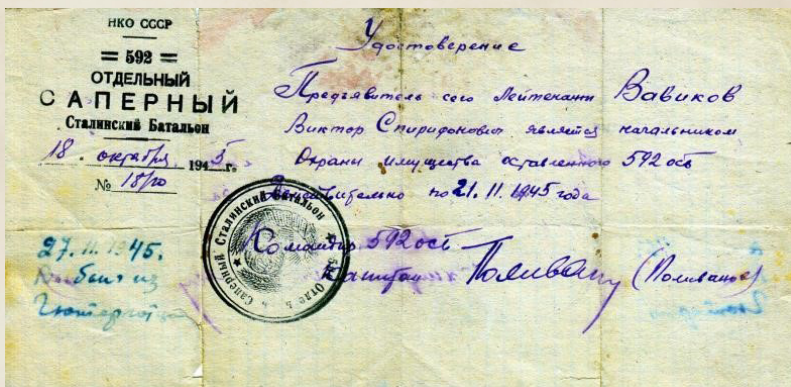 НКО СССР
= 592 =
ОТДЕЛЬНЫЙ
САПЕРНЫЙ
Сталинский Батальон
18. октября 1945 г.
№ 18/10
Удостоверение
Предъявитель сего Лейтенант Вавиков
Виктор Спиридонович является начальником
Охраны имущества оставленного 592 осб
Действительно по 21. 11. 1945 года
Командир 592 осб
Капитан Поливану (Поливанов)
Отде. Саперный Сталинский Батальон
27. 11. 1945.
Выбыл из